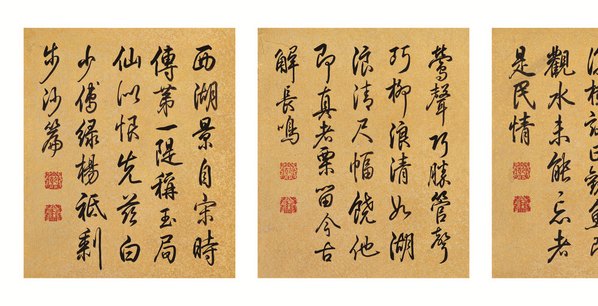 西湖景自宋時
傳第一隄稱玉局
仙似恨先茲白
少傅綠楊祗剩
步沙篇
鶯聲巧勝管聲
巧柳浪清如湖
浪清尺幅饒他
即真者栗留今古
解長鳴
觀水未能忘者
是民情